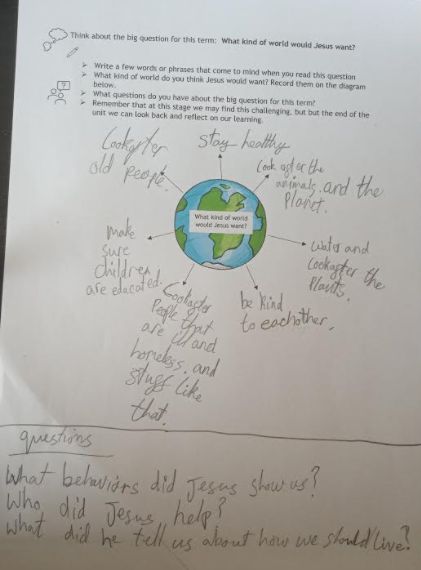 Think about the big question for this term: What kind of world would Jesus want?
➤ Write a few words or phrases that come to mind when you read this question
➤ What kind of world do you think Jesus would want? Record them on the diagram
below.
➤ What questions do you have about the big question for this term?
➤ Remember that at this stage we may find this challenging, but but the end of the
unit we can look back and reflect on our learning.
Look after
old people.
stay healthy
Look after the
animals, and the
Planet.
make
sure
children
are educated.
What kind of world
would Jesus want?
water and
Look after the
Plants.
Look after
People that
are ill and
homeless, and
stuff like
that.
be kind
to eachother.
questions
What behaviors did Jesus show us?
Who did Jesus help?
What did he tell us about how we should live?